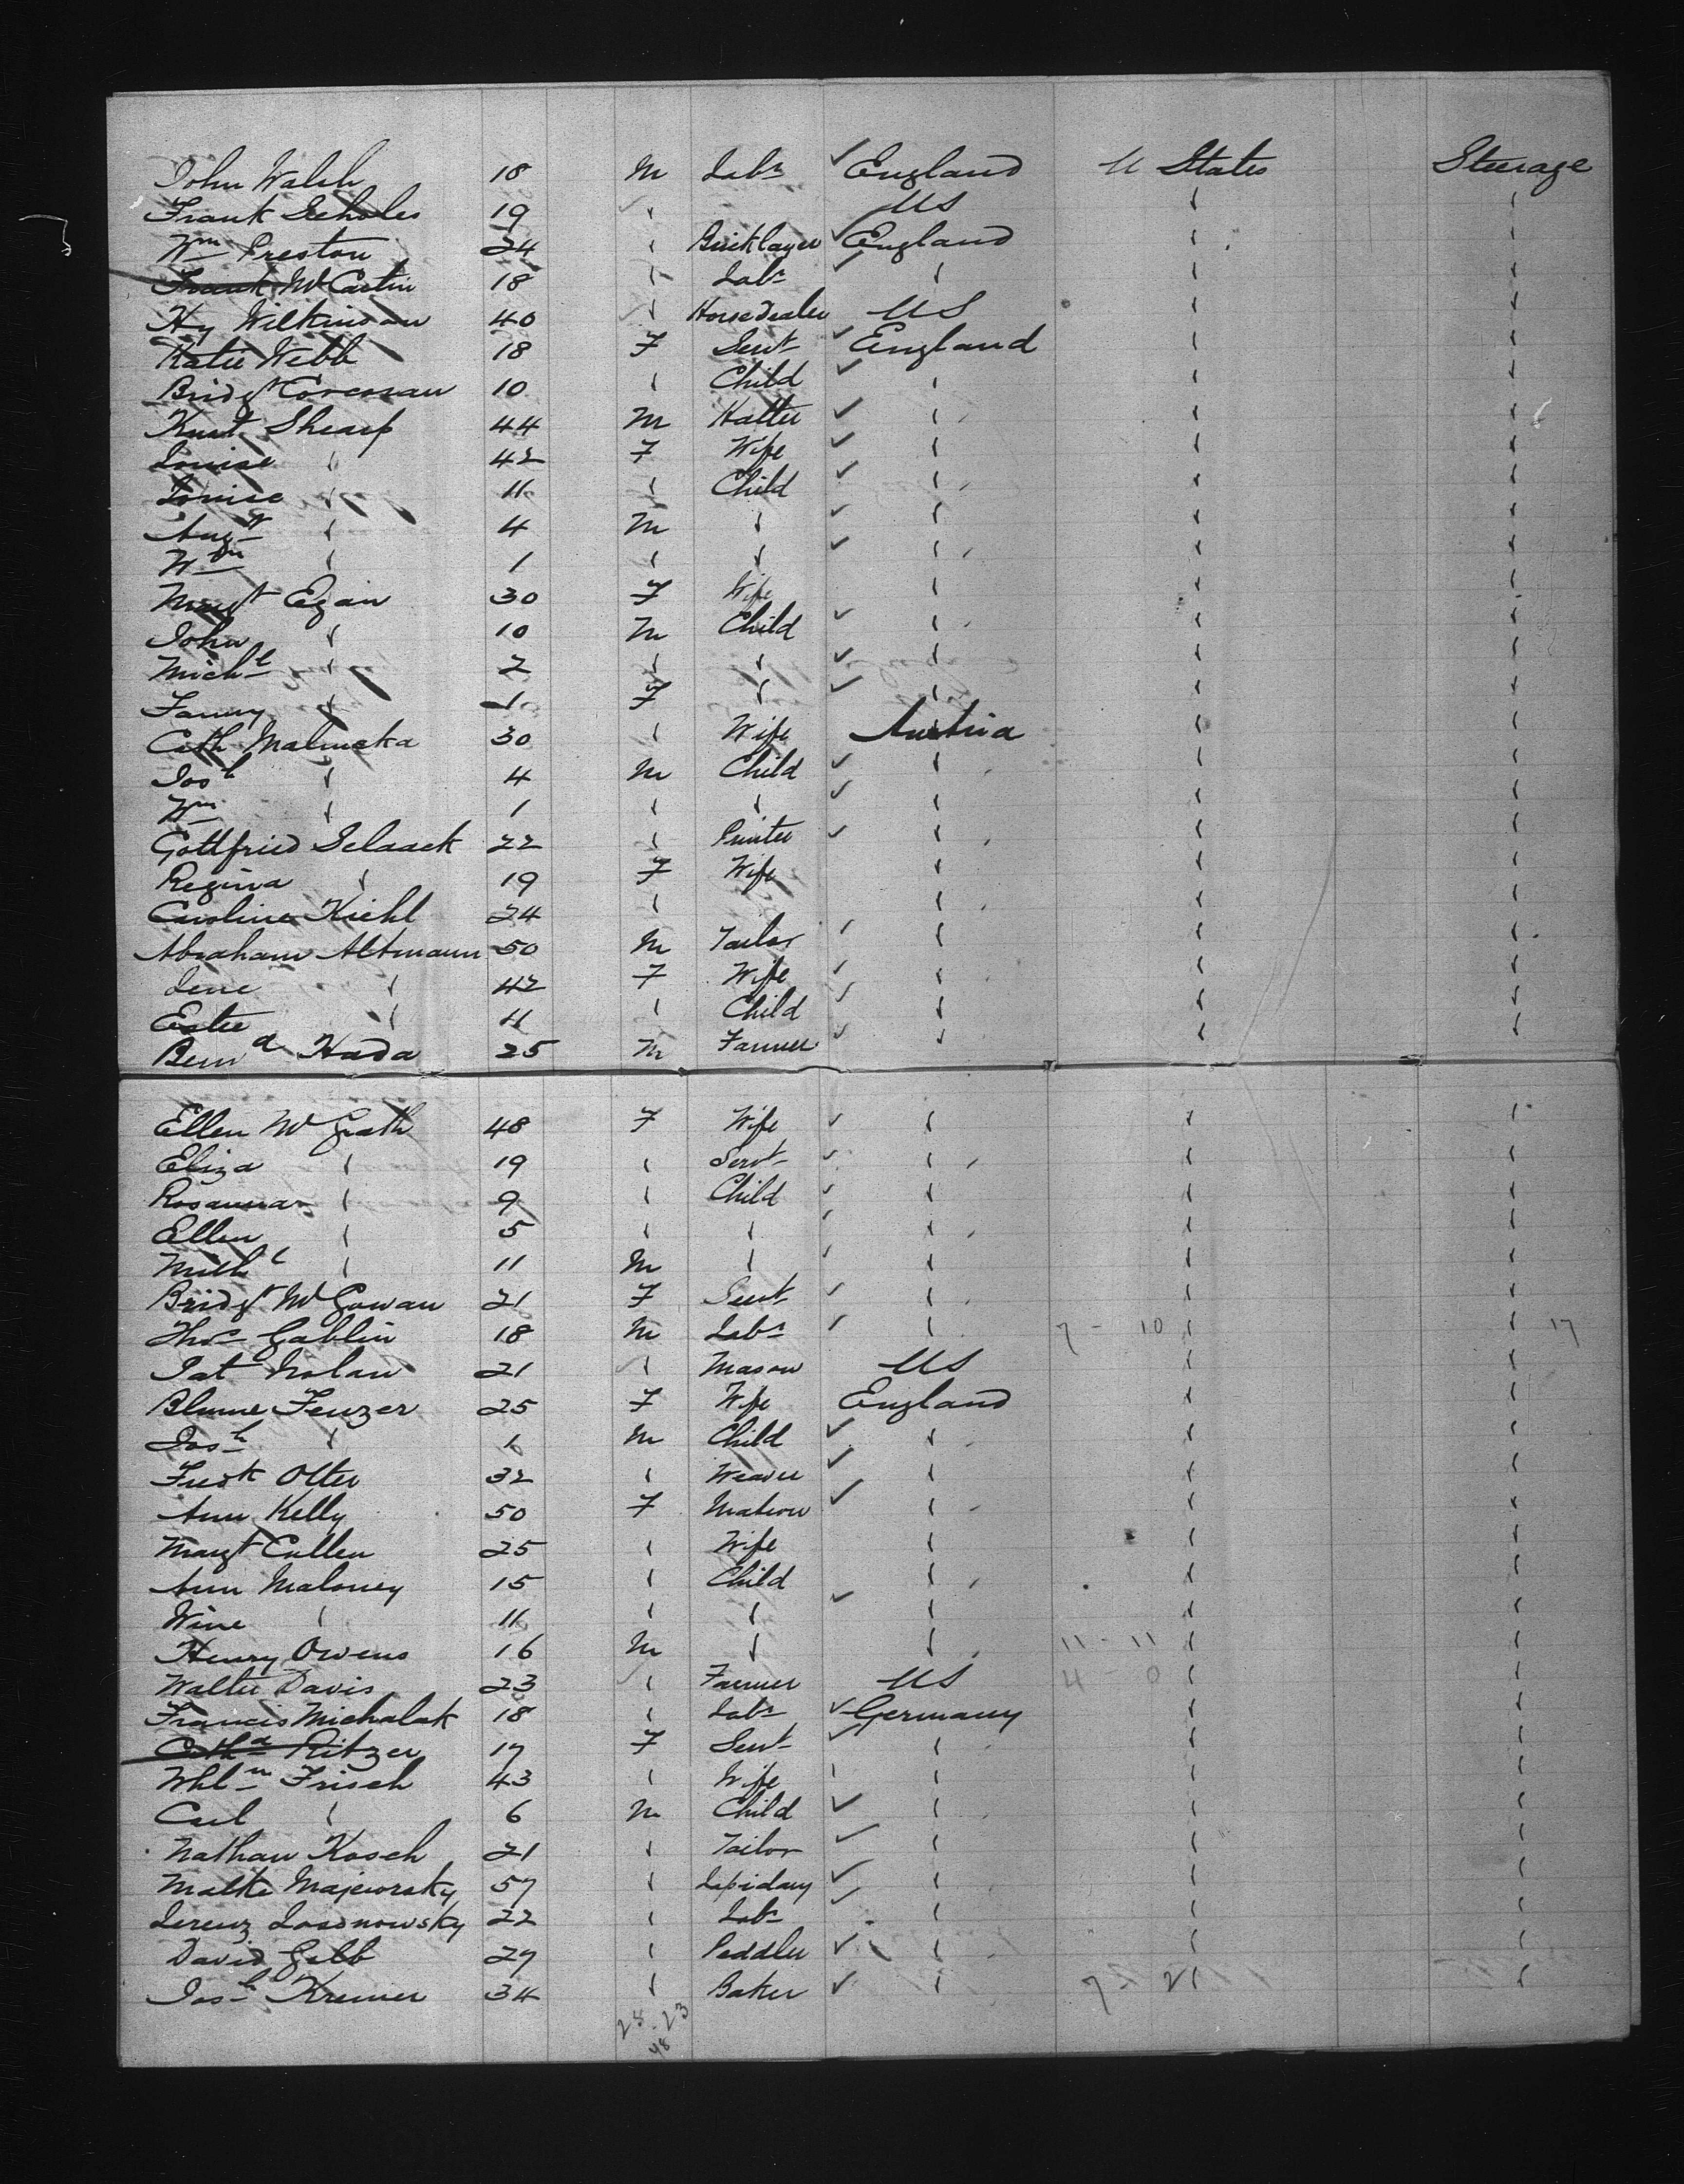 John Walsh 18 M Labr ✓ England U States Steerage
Frank Scholes 19 ✓ " US " "
Wm Preston 24 " Bricklayer ✓ England " "
Frank McCartin 18 " Labr ✓ " " "
Hy Wilkinson 40 ✓ " Horsedealer US " "
Katie Webb 18 F Servt ✓ England " "
Bridgt Corcoran 10 " Child ✓ " " "
Kurt Shearf 44 M Hatter ✓ " " "
Louise " 42 F Wife ✓ " " "
Louise " 11 " Child ✓ " " "
Augt " 4 M " ✓ " " "
Wm " 1 " " ✓ " " "
Margt Egan 30 F Wife " " "
John " 10 M Child ✓ " " "
Michl " 2 " " ✓ " " "
Fanny " 1 F " ✓ " " "
Cath Malincka 30 " Wife Austria " "
Josh " 4 M Child ✓ " " "
Wm " 1 " " ✓ " " "
Gottfried Selaack 22 " Printer ✓ " " "
Regina " 19 F Wife " " "
Caroline Kiehl 24 " " " "
Abraham Altmann 50 M Tailor ✓ " " "
Lene " 42 F Wife ✓ " " "
Ester " 11 " Child ✓ " " "
Bernd Hada 25 M Farmer ✓ " " "
Ellen McGrath 48 F Wife ✓ " " "
Eliza " 19 " Servt ✓ " " "
Rosanna " 9 " Child ✓ " " "
Ellen " 5 " " ✓ " " "
Michl " 11 M " ✓ " " "
Bridgt McGowan 21 F Servt ✓ " " "
Thos Gablin 18 M Labr ✓ " 7 - 10 " " 17
Pat Nolan 21 ✓ " Mason US " "
Blume Feuzer 25 F Wife England " "
Josh " 1 M Child ✓ " " "
Fredk Otter 32 " Weaver ✓ " " "
Ann Kelly 50 F Matron ✓ " " "
Margt Cullen 25 " Wife " " "
Ann Maloney 15 " Child " " "
Wine " 11 " " ✓ " " "
Henry Owens 16 M " " 11 - 11 " "
Walter Davis 23 ✓ " Farmer US 4 - 0 " "
Francis Michalak 18 " Labr ✓ Germany " "
Catha Ritzer 17 F Servt ✓ " " "
Whlm Frisch 43 " Wife " " "
Carl " 6 M Child ✓ " " "
Nathan Kosch 21 " Tailor ✓ " " "
Malke Majewsky 57 " Lapidary ✓ " " "
Lerenz Losonowsky 22 " Labr ✓ " " "
David Gelb 27 " Peddler ✓ " " "
Josh Kremer 34 " Baker ✓ " 7 - 2 " "
25 - 23
48